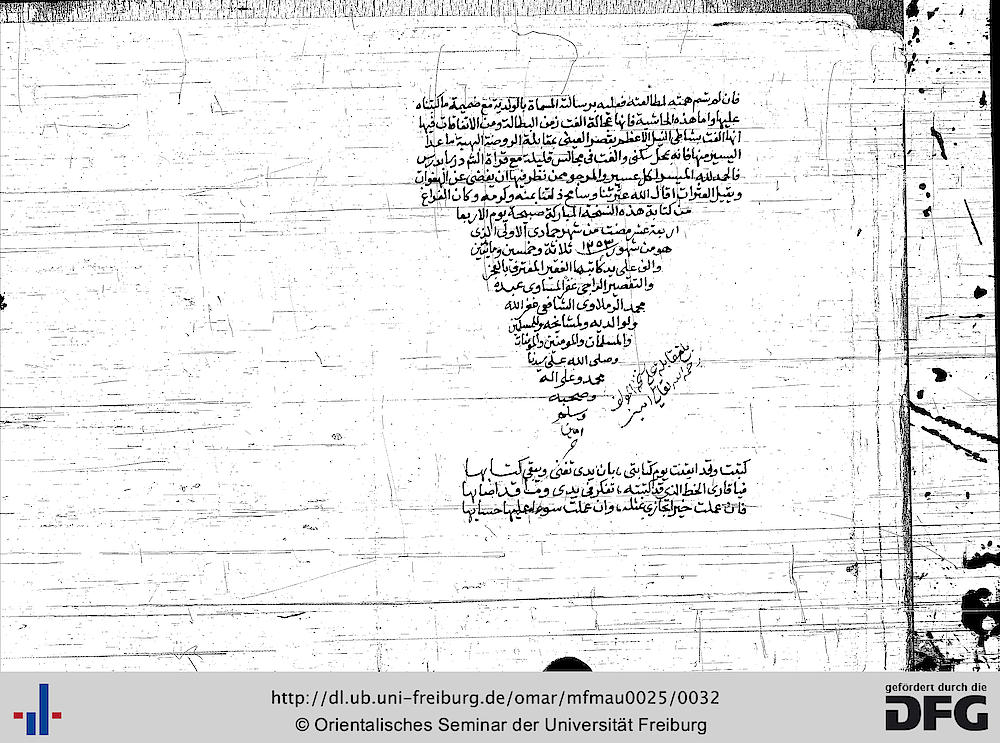 فان لم تسم همته لمطالعته فعليه برسالته المسماة بالولدية مع ضميمة ما كتبناه
عليها واما هذه الحاشية فانها عجالة الفت زمن البطالة ومن الاتفاقات فيها
انها الفت بشاطئ النيل الاعظم بقصر العينى بمقابلة الروضة البهية ما عدا
اليسير منها فانه بمحل سكنى والفت فى مجالس قليلة مع قراة الشذور بالدرس
فالحمد لله الميسر لكل عسير والمرجو ممن نظر فيها ان يغضى عن الهفوات
ويقيل العثرات اقال الله عثرتنا وسامح زلتنا بمنه وكرمه وكان الفراغ
من كتابة هذه النسخة المباركة صبيحة يوم الاربعا
اربعة عشر مضت من شهر جمادى الاولى الذى
هو من شهور ١٢٥٣ ثلاثة وخمسين ومايتين
والف على يد كاتبها الفقير المعترف بالعجز
والتقصير الراجى عفو المساوى عبده
محمد الرملاوى الشافعى غفر الله له
ولوالديه ولمشايخه وللمسلمين
والمسلمات والمومنين والمومنات
وصلى الله على سيدنا
محمد وعلى اله
وصحبه
وسلم
امين
بلغ مقابلة على نسخة المولف
رحمه الله تعالى امين
كتبت وقد ايقنت يوم كتابتى ، بان يدى تفنى ويبقى كتابها
فيا قارئ الخط الذى قد كتبته ، تفكر فى يدى وما قد اصابها
فان عملت خيرا تجازى بمثله ، وان عملت سوءا عليها حسابها
http://dl.ub.uni-freiburg.de/omar/mfmau0025/0032
© Orientalisches Seminar der Universität Freiburg
gefördert durch die
DFG